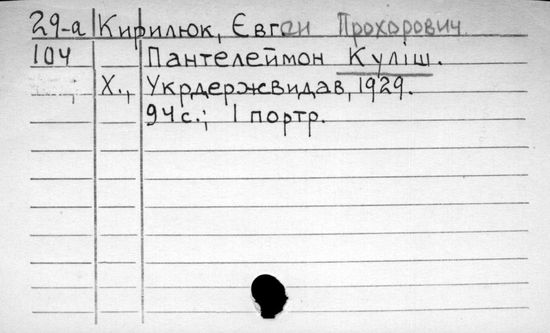 29-а Кирилюк, Євген Прохорович
104 Пантелеймон Куліш.
Х., Укрдержвидав, 1929.
94 с.; 1 портр.